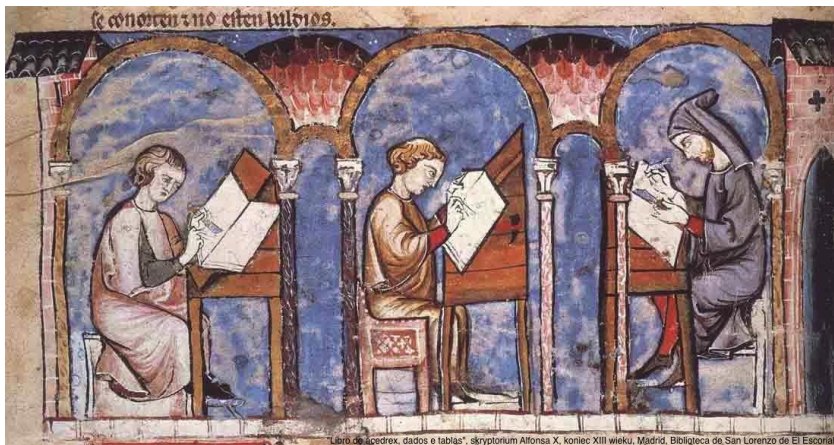 se conorten ⁊ no esten baldios.
"Libro de acedrex, dados e tablas", skryptorium Alfonsa X, koniec XIII wieku, Madrid, Bibliqteca de San Lorenzo de El Escorial